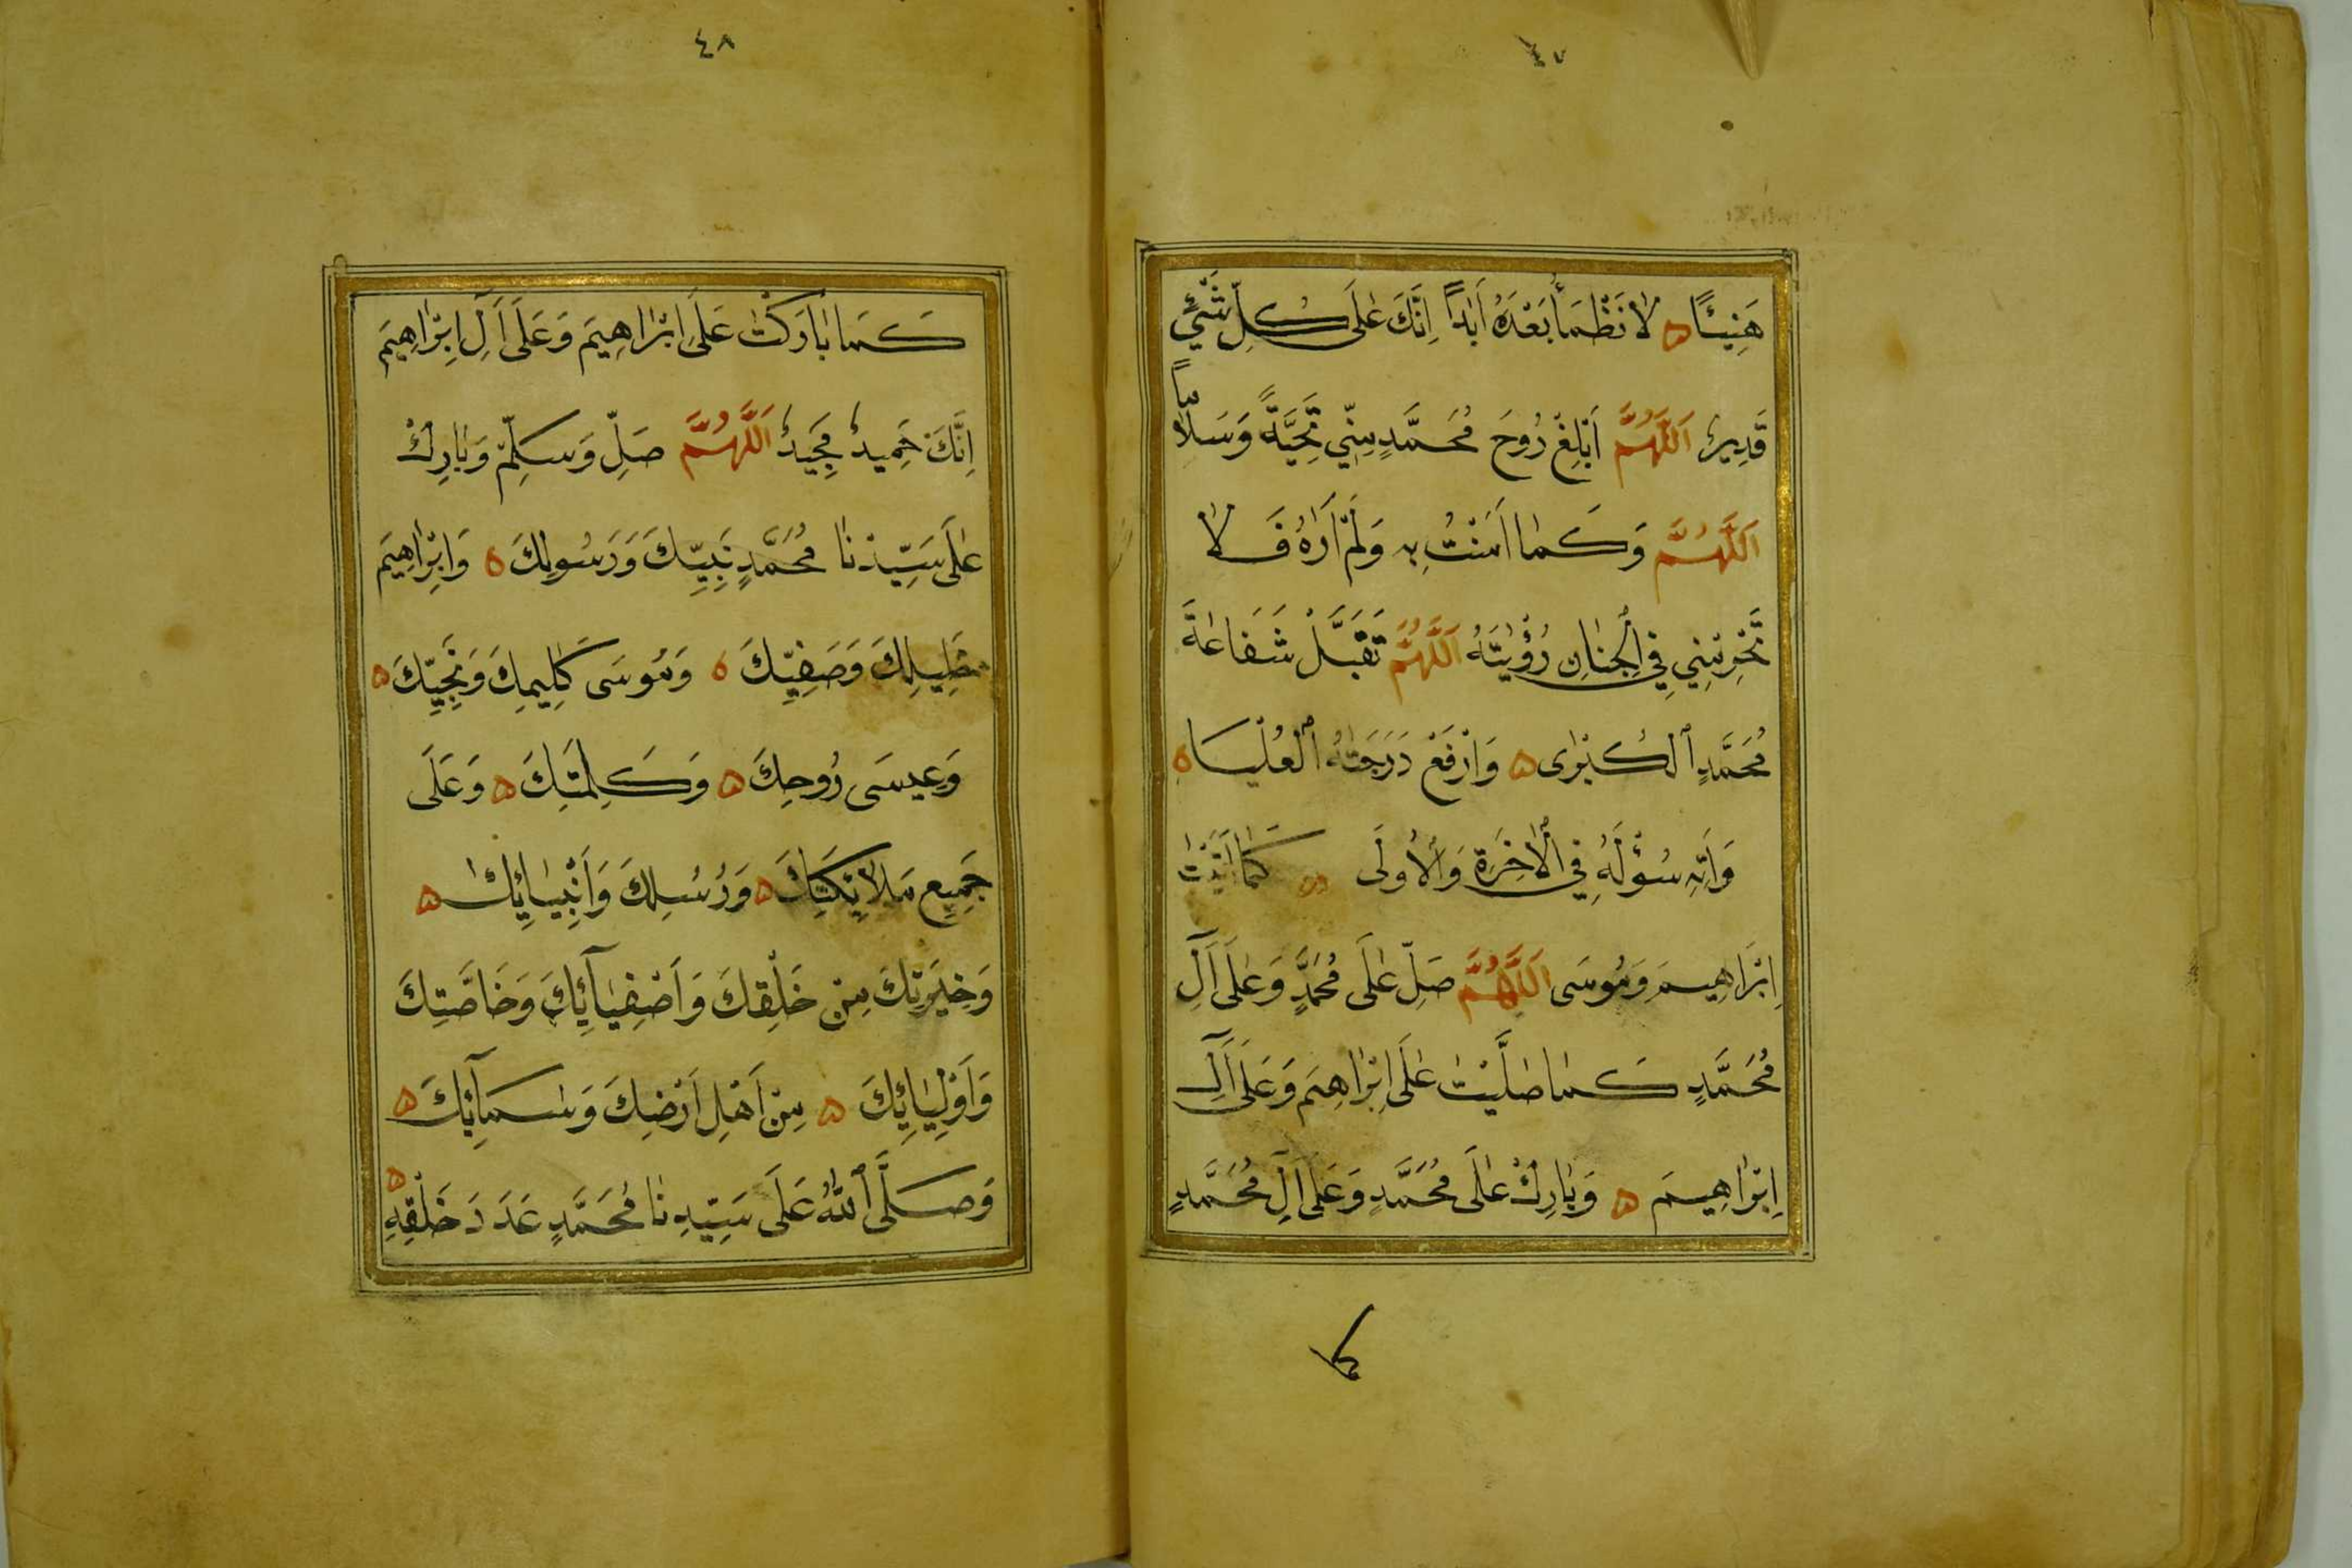 ٤٧
هَنِيئًا ه لَا نَظْمَأُ بَعْدَهُ أَبَدًا اِنَّكَ عَلَى كُلِّ شَيْءٍ
قَدِيرٌ اَللَّهُمَّ اَبْلِغْ رُوحَ مُحَمَّدٍ مِنِّي تَحِيَّةً وَسَلَامًا
اَللَّهُمَّ وَكَمَا اٰمَنْتُ بِهِ وَلَمْ اَرَاهُ فَلَا
تَحْرِمْنِي فِي الْجِنَانِ رُؤْيَتَهُ اَللَّهُمَّ تَقَبَّلْ شَفَاعَةَ
مُحَمَّدٍ ٱلْكُبْرٰى ه وَارْفَعْ دَرَجَتَهُ ٱلْعُلْيَا ه
وَاٰتِهِ سُؤْلَهُ فِي الْاٰخِرَةِ وَالْأُولَى ه كَمَا اٰتَيْتَ
اِبْرَاهِيمَ وَمُوسَى اَللَّهُمَّ صَلِّ عَلَى مُحَمَّدٍ وَعَلَى اٰلِ
مُحَمَّدٍ كَمَا صَلَّيْتَ عَلَى اِبْرَاهِيمَ وَعَلَى اٰلِ
اِبْرَاهِيمَ ه وَبَارِكْ عَلَى مُحَمَّدٍ وَعَلَى اٰلِ مُحَمَّدٍ
كما
٤٨
كَمَا بَارَكْتَ عَلَى اِبْرَاهِيمَ وَعَلَى اٰلِ اِبْرَاهِيمَ
اِنَّكَ حَمِيدٌ مَجِيدٌ اَللَّهُمَّ صَلِّ وَسَلِّمْ وَبَارِكْ
عَلَى سَيِّدِنَا مُحَمَّدٍ نَبِيِّكَ وَرَسُولِكَ ه وَاِبْرَاهِيمَ
خَلِيلِكَ وَصَفِيِّكَ ه وَمُوسَى كَلِيمِكَ وَنَجِيِّكَ ه
وَعِيسَى رُوحِكَ ه وَكَلِمَتِكَ ه وَعَلَى
جَمِيعِ مَلَائِكَتِكَ ه وَرُسُلِكَ وَاَنْبِيَائِكَ ه
وَخِيَرَتِكَ مِنْ خَلْقِكَ وَاَصْفِيَآئِكَ وَخَاصَّتِكَ
وَاَوْلِيَائِكَ ه مِنْ اَهْلِ اَرْضِكَ وَسَمَآئِكَ ه
وَصَلَّى ٱللهُ عَلَى سَيِّدِنَا مُحَمَّدٍ عَدَدَ خَلْقِهِ ه